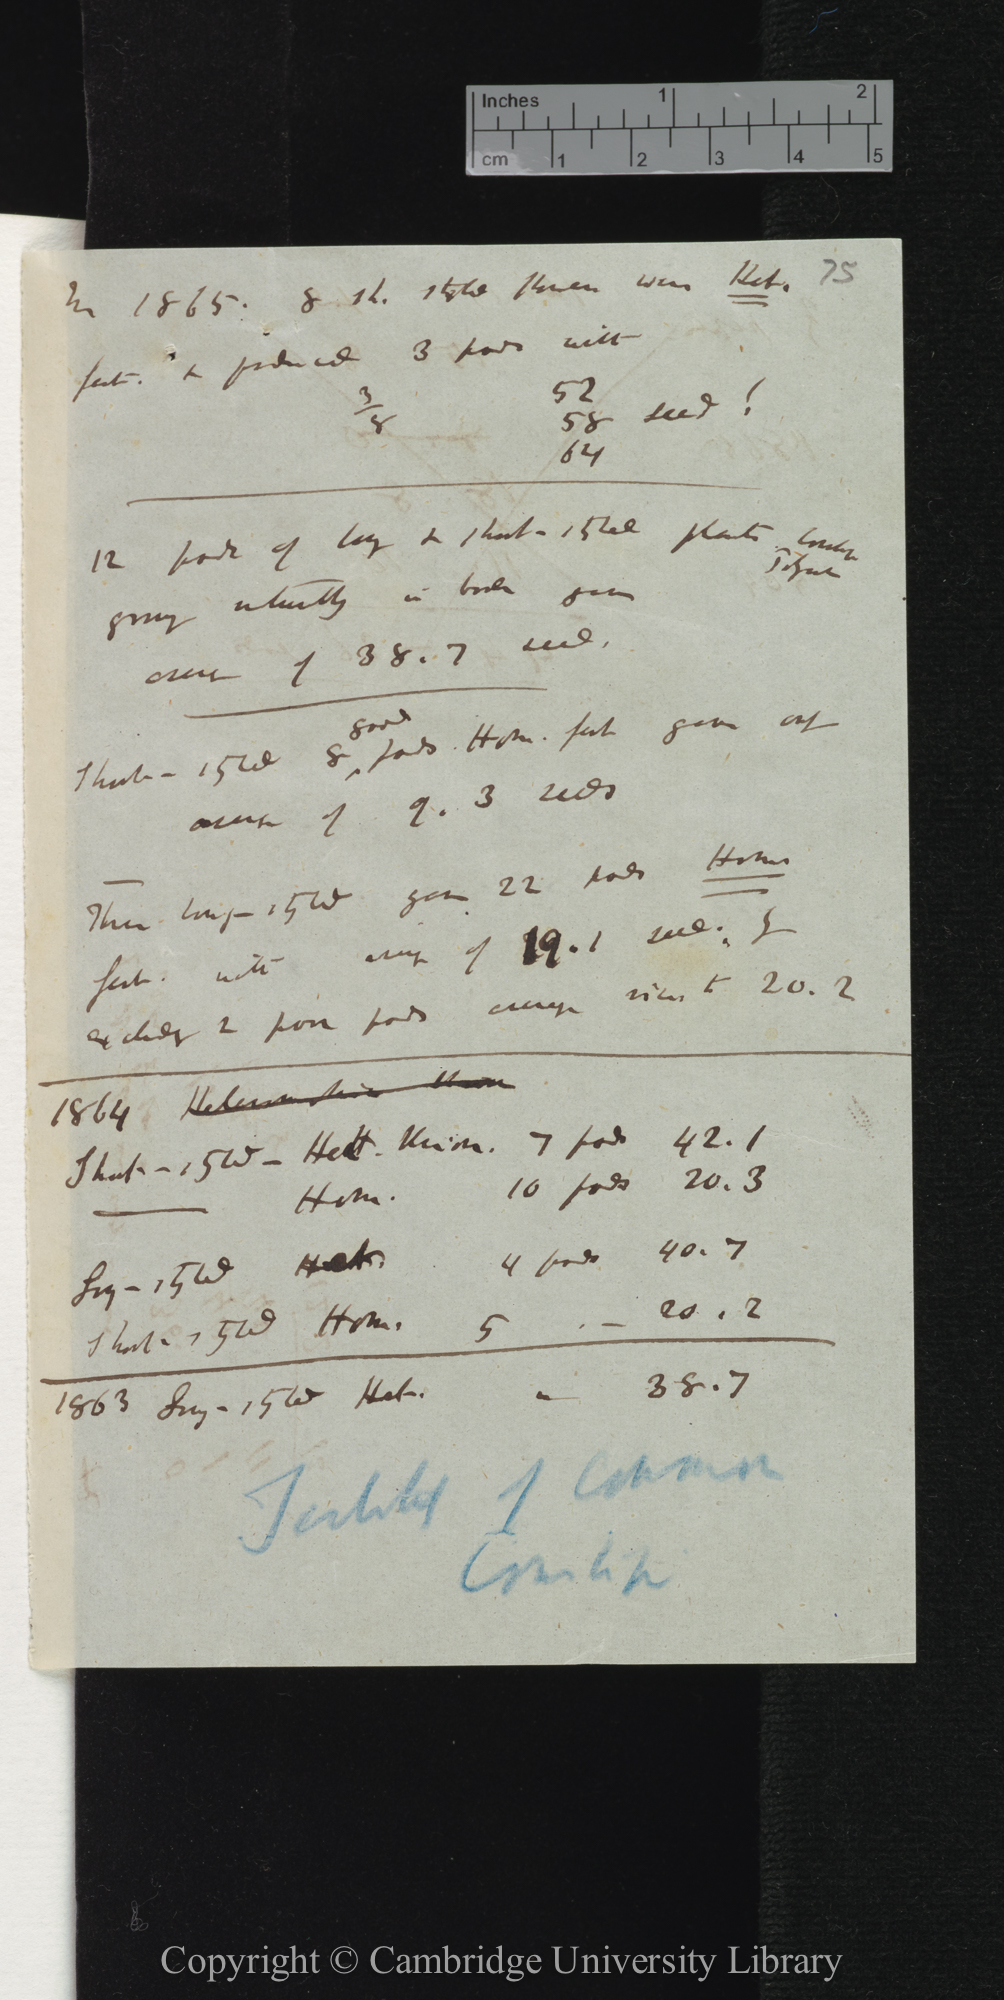 Inches 1 2
cm 1 2 3 4 5
75
In 1865. 8 sh. styled flowers were Het.
fert. & produced 3 pods with
3/8 52
58 seed!
64
12 pods of long & short-styled plants
growing naturally in both gave
average of 38.7 seed.
Short-styled 8 good pods. Hom. fert gave
average of 9.3 seeds
Three long-styled gave 22 pods Homo
fert. with average of 19.1 seed. &
excludg 2 poor pods average rises to 20.2
1864 Heteromorphic Union
Short-styled - Het. Union. 7 pods 42.1
——— Hom. 10 pods 20.3
Long-styled Het. 4 pods 40.7
Short-styled Hom. 5 — 20.2
1863 Long-styled Het. — 38.7
Fertility of Common
Cowslip
Copyright © Cambridge University Library